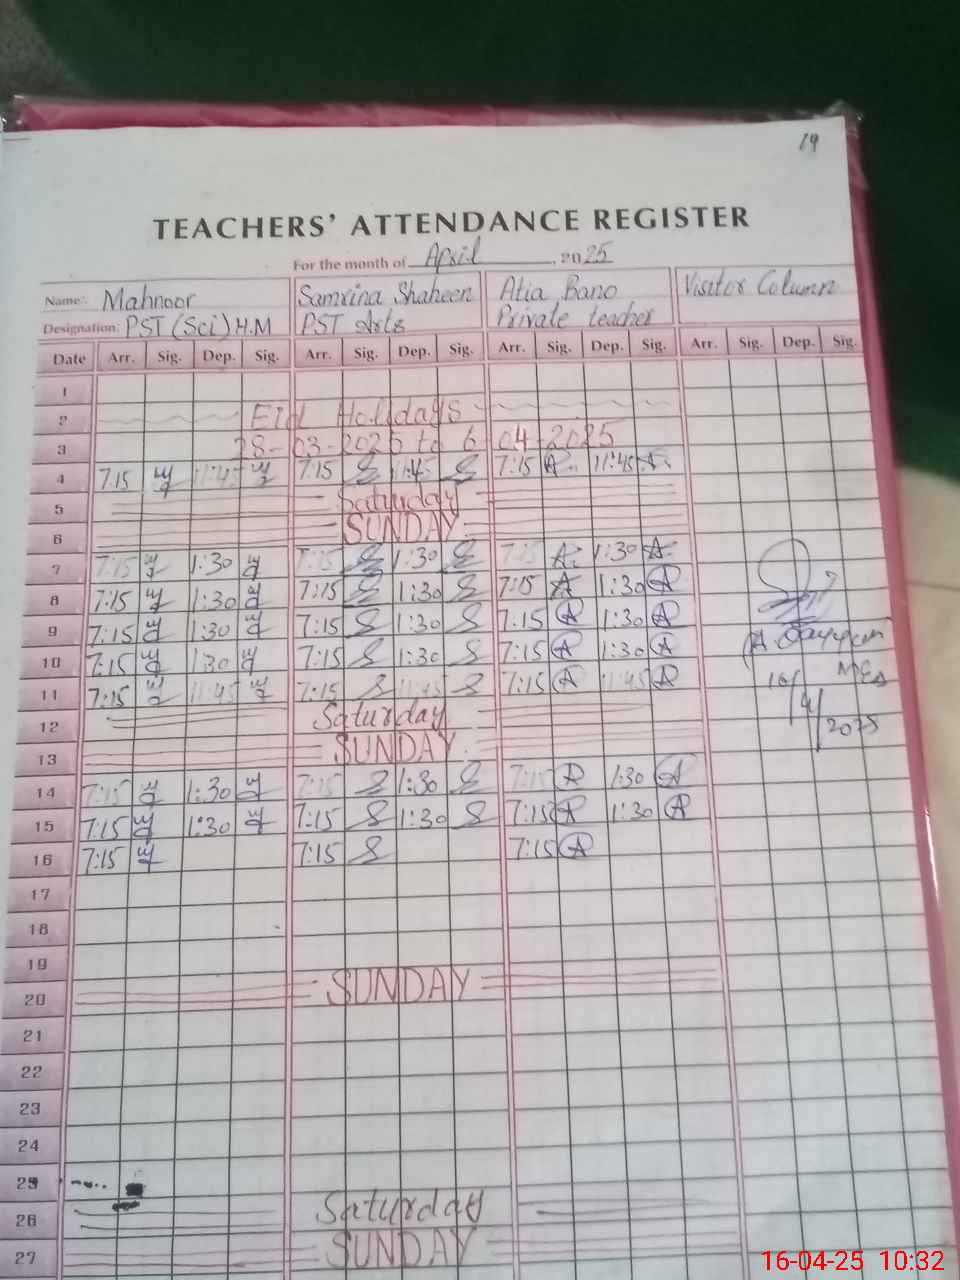 19
TEACHERS' ATTENDANCE REGISTER
For the month of April, 2025
Name: Mahnoor Samrina Shaheen Atia Bano Visitor Column
Designation: PST (Sci) H.M PST Arts Private teacher
Date Arr. Sig. Dep. Sig. Arr. Sig. Dep. Sig. Arr. Sig. Dep. Sig. Arr. Sig. Dep. Sig.
1
2 Eid Holidays
3 28-03-2025 to 6 04-2025
4 7:15 11:45 7:15 11:45 7:15 11:45
5 Saturday
6 SUNDAY
7 7:15 1:30 7:15 1:30 7:15 1:30
8 7:15 1:30 7:15 1:30 7:15 1:30
9 7:15 1:30 7:15 1:30 7:15 1:30
10 7:15 1:30 7:15 1:30 7:15 1:30
11 7:15 11:45 7:15 11:45 7:15 11:45
16/4/2025
12 Saturday
13 SUNDAY
14 7:15 1:30 7:15 1:30 7:15 1:30
15 7:15 1:30 7:15 1:30 7:15 1:30
16 7:15 7:15 7:15
17
18
19
20 SUNDAY
21
22
23
24
25
26 Saturday
27 SUNDAY
16-04-25 10:32